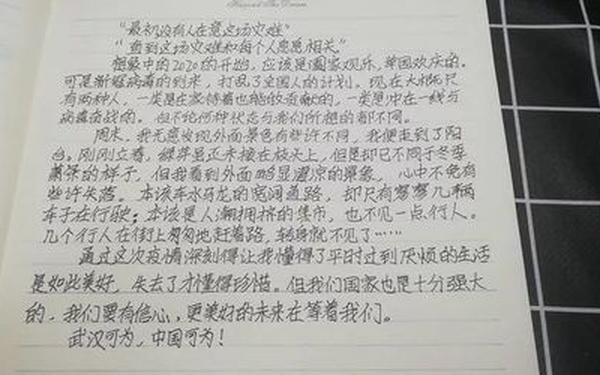 "最初没有人在意这场灾难"
"直到这场灾难和每个人息息相关"
想象中的2020的开始，应该是阖家观乐，举国欢庆的。
可是新冠病毒的到来，打乱了全国人的计划。现在大概只
有两种人，一类是在家待着也能做贡献的，一类是冲在一线与
病毒奋战的。但不论何种状态与我们所想的都不同。
周末，我无意发现外面景色有些许不同，我便走到了阳
台。刚刚立春，绿芽虽正未接在枝头上，但是却已不同于冬季
萧条的样子，但我看到外面略显凄凉的景象，心中不免有
些许失落。本该车水马龙的宽阔道路，却只有寥寥几辆
车子在行驶；本该是人潮拥挤的集市，也不见一点行人。
几个行人在街上匆匆地赶着路，转身就不见了……
通过这次疫情深刻得让我懂得了平时过到厌烦的生活
是如此美好，失去了才懂得珍惜。但我们国家也是十分强大
的，我们要有信心，更美好的未来在等着我们。
武汉可为，中国可为！